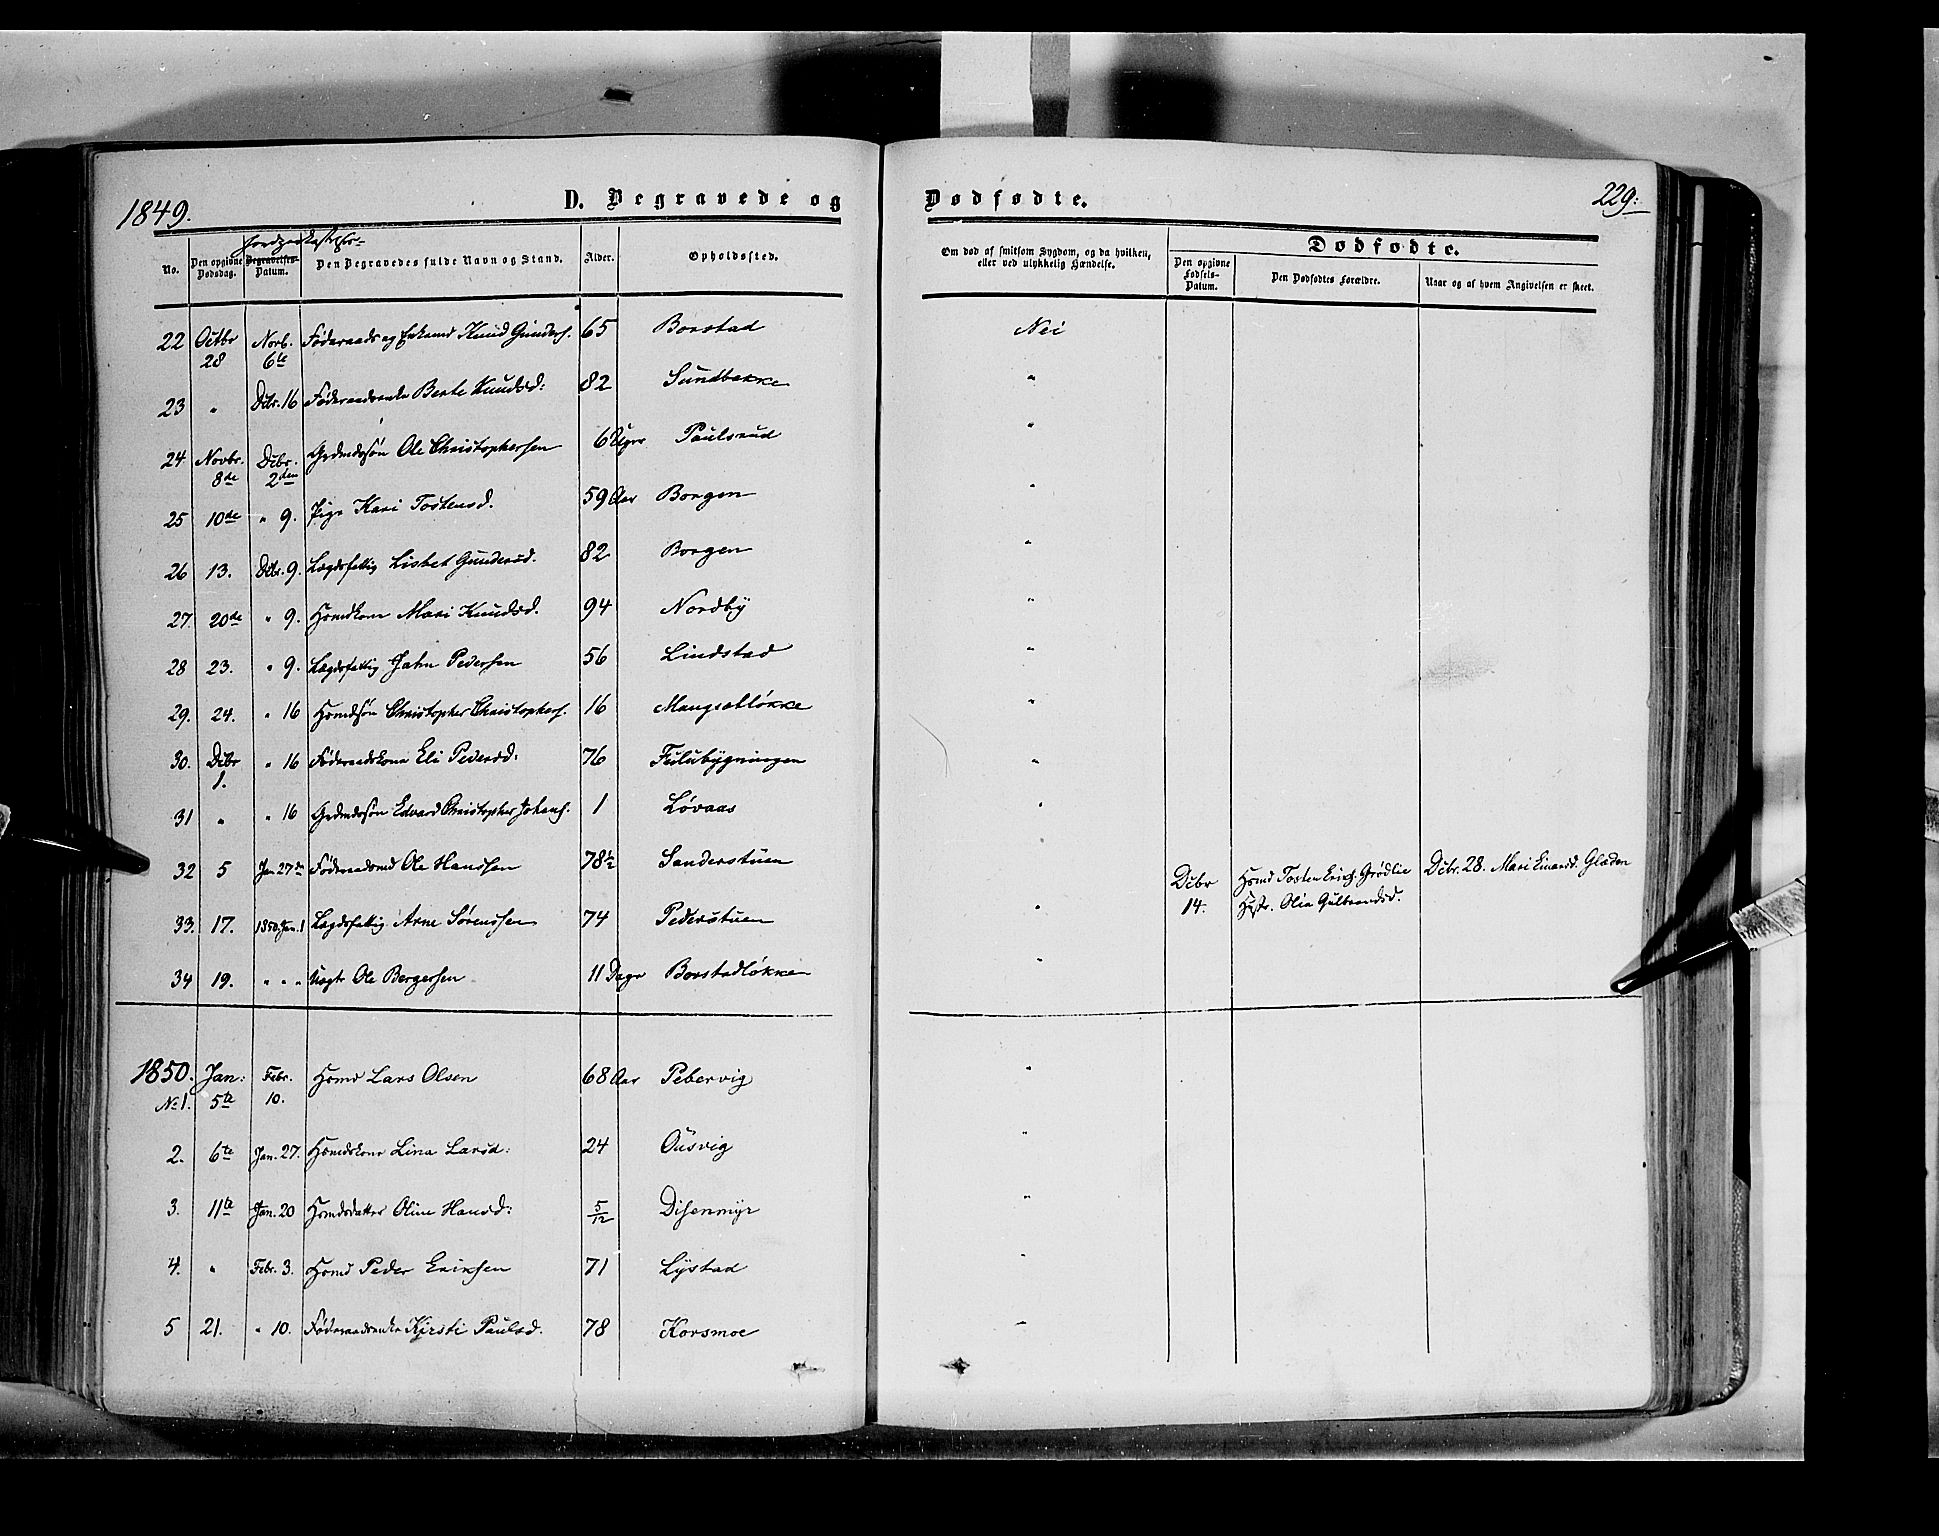 1849.
D. Begravede og
Dødfødte.
229.
Jordpaakastelses-
No.
Den opgivne Dødsdag.
Begravelses-Datum.
Den Begravedes fulde Navn og Stand.
Alder.
Opholdssted.
Om død af smitsom Sygdom, og da hvilken, eller ved ulykkelig Hændelse.
Dødfødte.
Den opgivne Fødsels-Datum.
Den Dødfødtes Forældre.
Naar og af hvem Angivelsen er skeet.
22 Octbr 28 Novb. 6te Føderaads og Enkemd Knud Gunders. 65 Borstad Nei
23 " Dcbr. 16 Føderaadsenke Berte Knudsd: 82 Sundbakke "
24 Novbr. 8de Dcbr. 2den Grdmdssøn Ole Christophersen 6 Uger Paulsrud "
25 10de " 9. Pige Kari Tostensd. 59 Aar Borgen "
26 13. Dcbr. 9. Lægdsfattig Lisbet Gundersd. 82 Borgen "
27. 20de " 9. Hsmdkone Mari Knudsd. 94 Nordby "
28 23. " 9. Lægdsfattig John Pedersen 56 Lindstad "
29. 24. " 16 Hsmdsøn Christopher Christophers. 16 Mangsetløkke "
30. Dcbr 1. " 16 Føderaadskone Eli Pedersd: 76 Fulubygningen "
31 " " 16 Grdmdssøn Edvard Christopher Johans. 1 Løvaas "
32 5 Jan 27de Føderaadsmd Ole Hanssen 78½ Sanderstuen "
Dcbr 14. Hsmd Tosten Erics. Grødlie
Hstr. Olia Gulbrandsd.
Dcbr. 28. Mari Einarsd. Glæden
33. 17. 1850 Jan. 1 Lægdsfattig Arne Sørenssen 74 Pederstuen "
34 19. " " " Uægte Ole Bergersen 11 Dage Borstadløkken "
1850. No 1. Jan: 5te Febr. 10. Hsmd Lars Olsen 68 Aar Pebervig "
2. 6te Jan. 27. Hsmdskone Lina Larsd: 24 Ousvig "
3. 11te Jan. 20 Hsmdsdatter Oline Hansd: 5/12 Disenmyr "
4. " Febr. 3. Hsmd Peder Eriksen 71 Lystad "
5 21. " 10. Føderaadsenke Kjersti Paulsd. 78 Korsmoe "